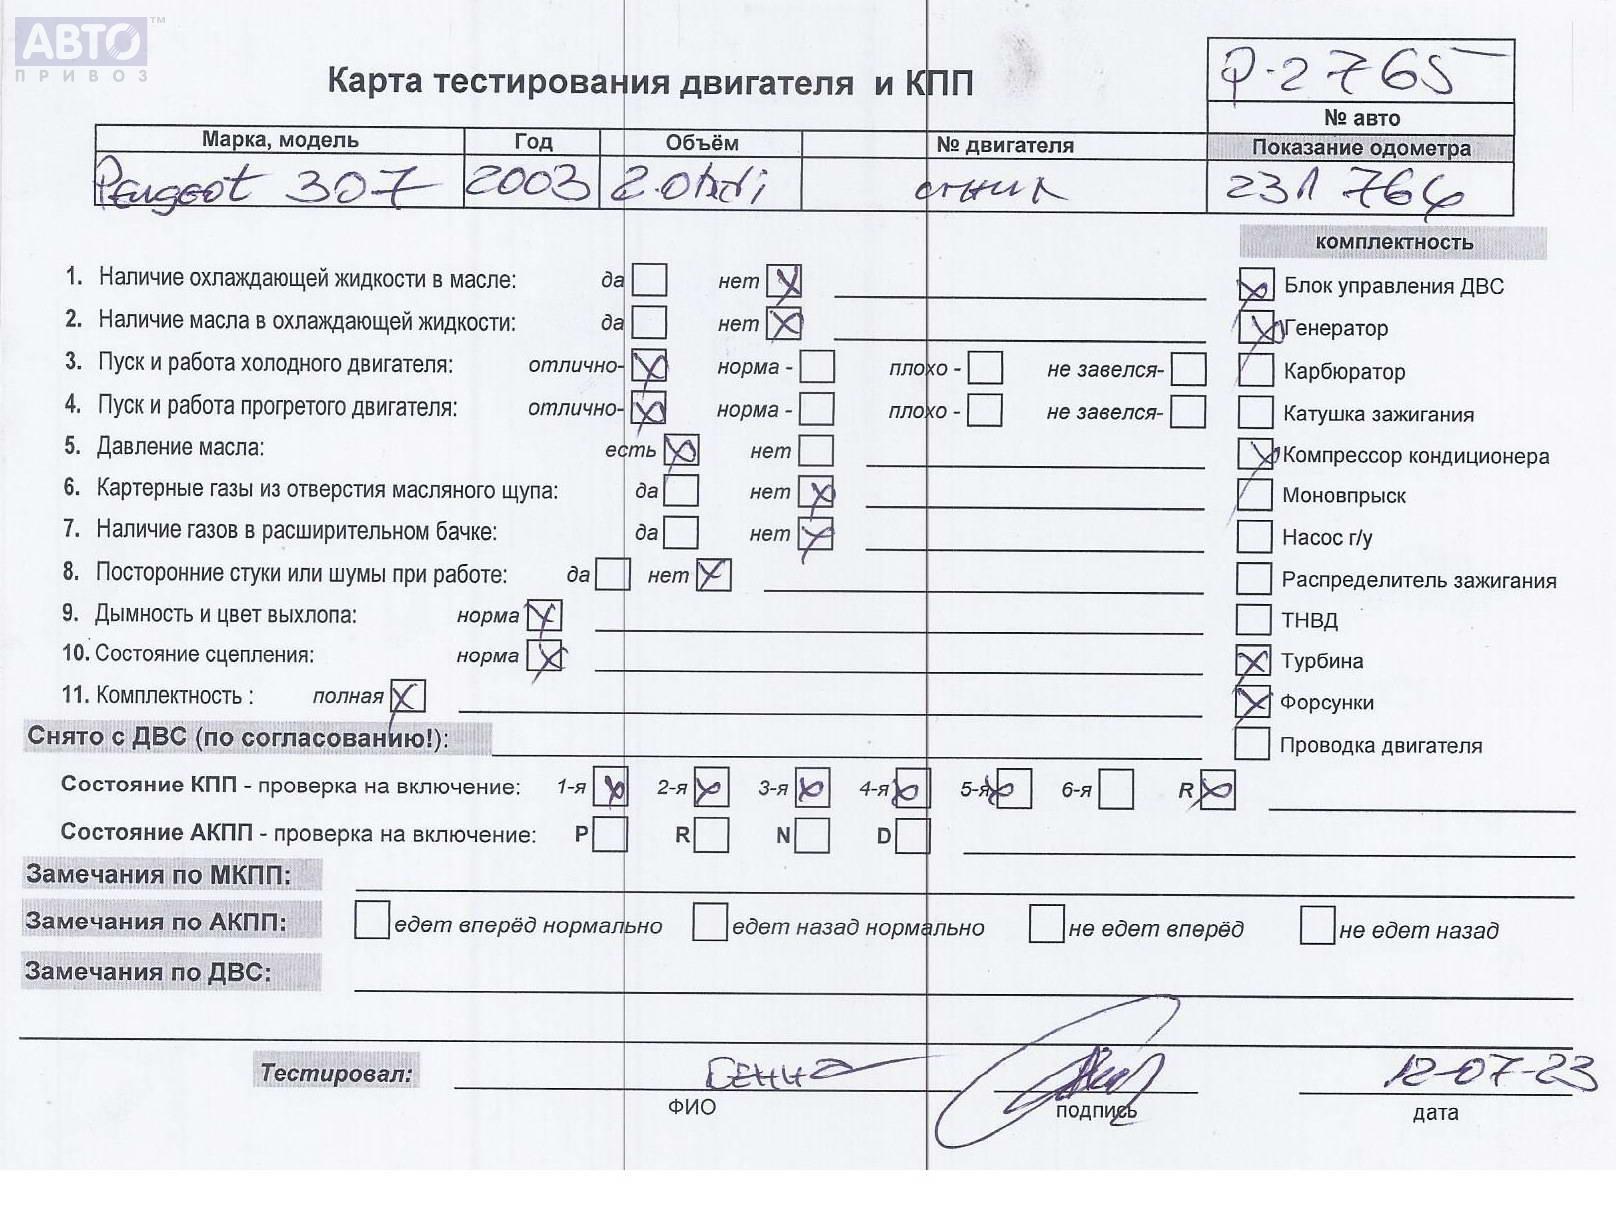 АВТО™
ПРИВОЗ
Карта тестирования двигателя и КПП
P-2765
№ авто
Марка, модель Год Объём № двигателя Показание одометра
Peugeot 307 2003 2.0hdi 231 764
комплектность
1. Наличие охлаждающей жидкости в масле: да нет
Блок управления ДВС
2. Наличие масла в охлаждающей жидкости: да нет
Генератор
3. Пуск и работа холодного двигателя: отлично- норма - плохо - не завелся-
Карбюратор
4. Пуск и работа прогретого двигателя: отлично- норма - плохо - не завелся-
Катушка зажигания
5. Давление масла: есть нет
Компрессор кондиционера
6. Картерные газы из отверстия масляного щупа: да нет
Моновпрыск
7. Наличие газов в расширительном бачке: да нет
Насос г/у
8. Посторонние стуки или шумы при работе: да нет
Распределитель зажигания
9. Дымность и цвет выхлопа: норма
ТНВД
10. Состояние сцепления: норма
Турбина
11. Комплектность : полная
Форсунки
Снято с ДВС (по согласованию!):
Проводка двигателя
Состояние КПП - проверка на включение: 1-я 2-я 3-я 4-я 5-я 6-я R
Состояние АКПП - проверка на включение: P R N D
Замечания по МКПП:
Замечания по АКПП: едет вперёд нормально едет назад нормально не едет вперёд не едет назад
Замечания по ДВС:
Тестировал: 12-07-23
ФИО подпись дата